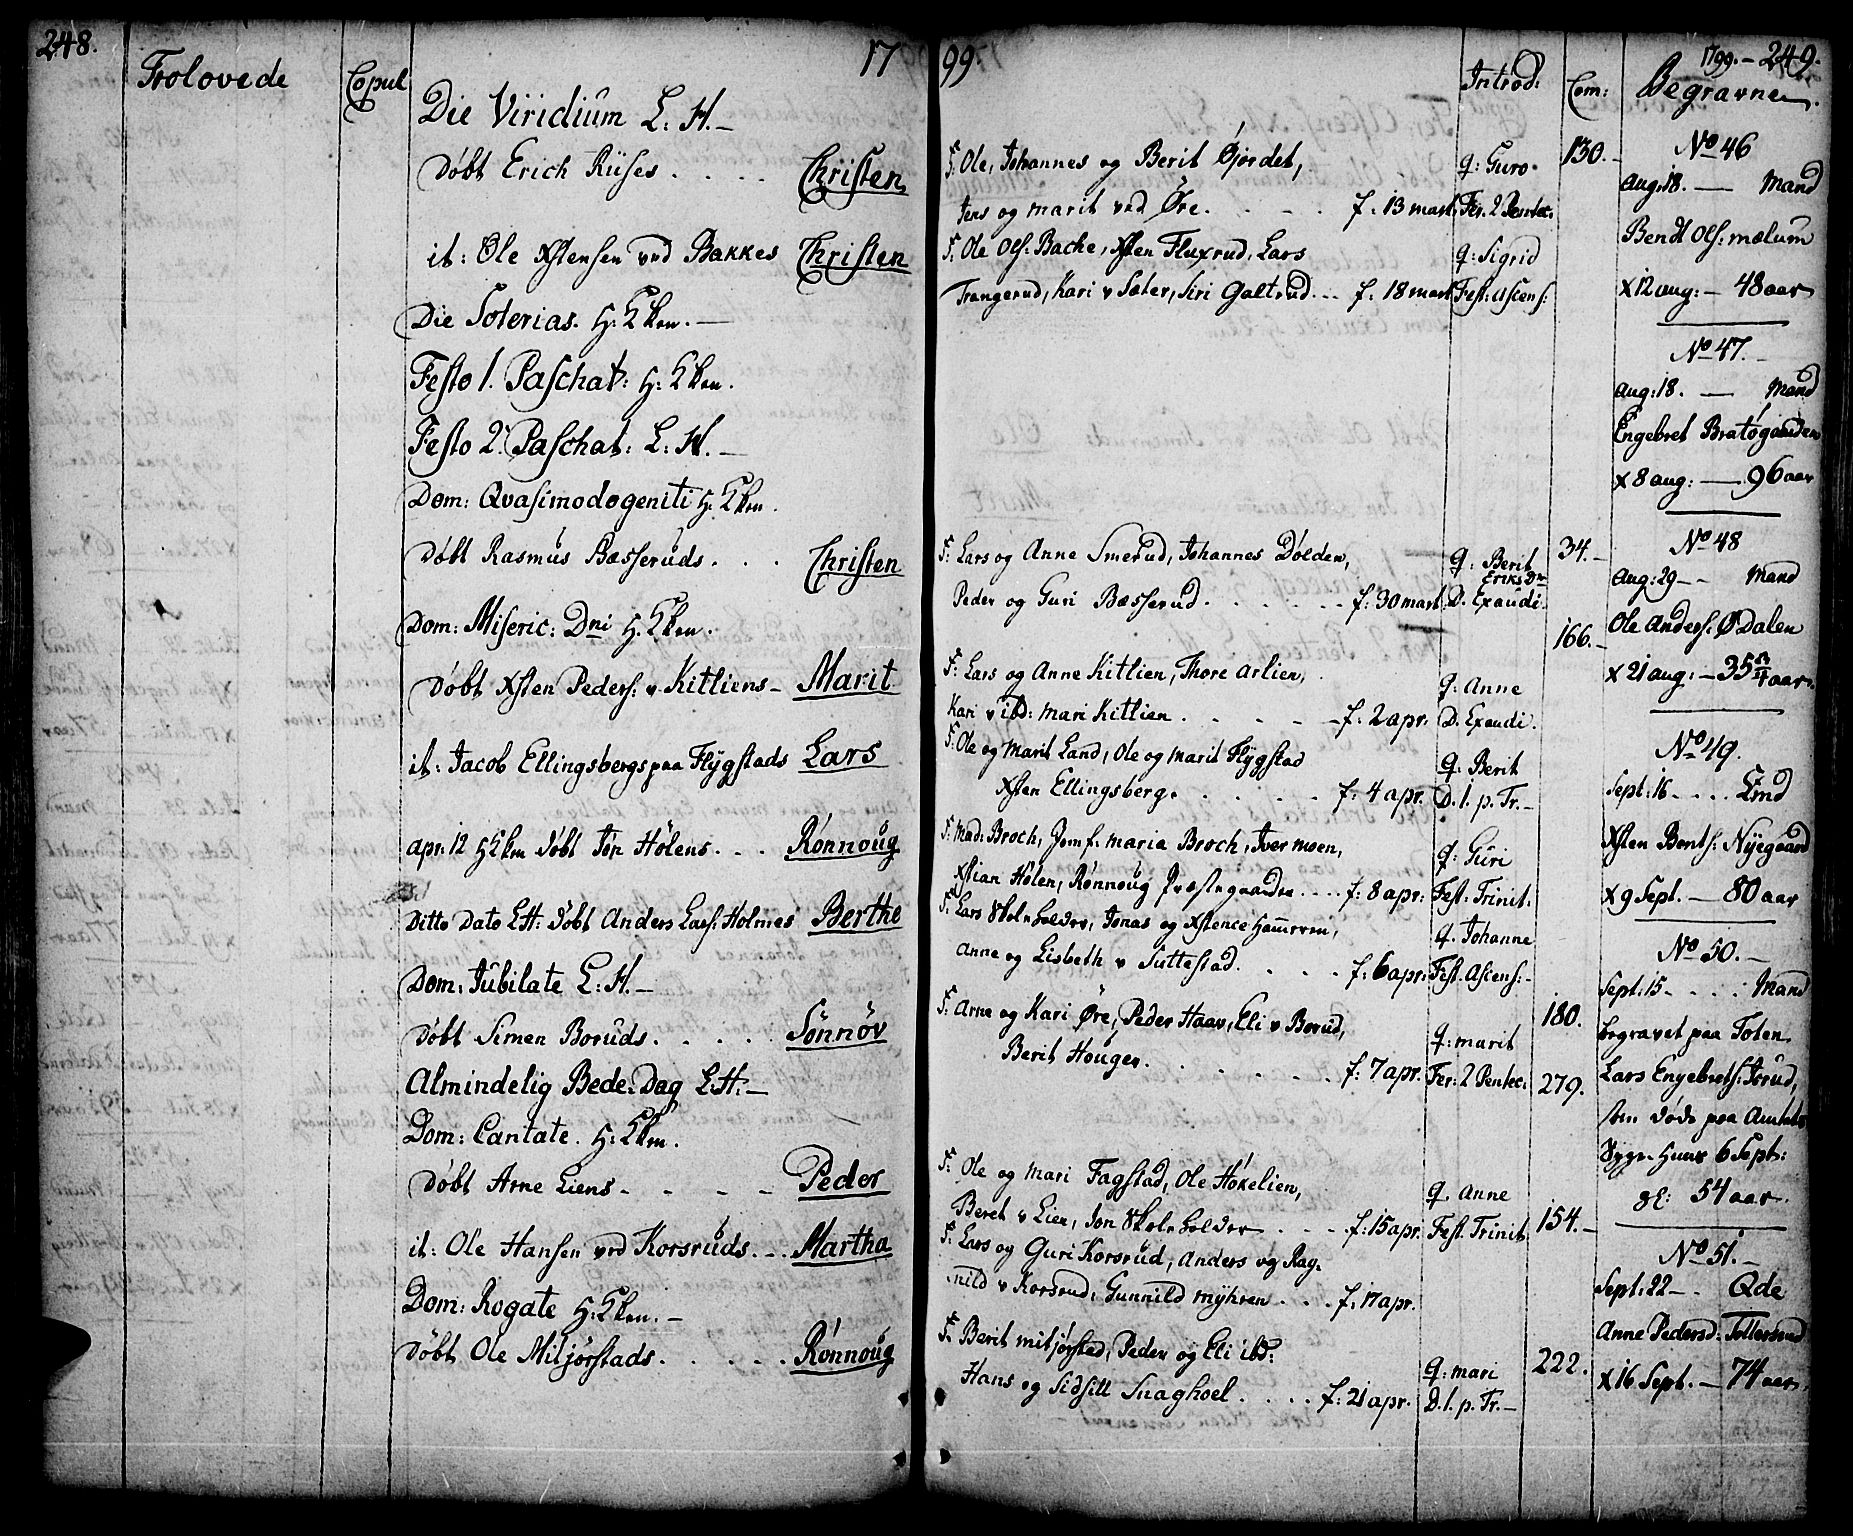 248.
Trolovede
Copul
17
Die Viridium L: H.—
Døbt Erich Riises . . . . Christen
it: Ole Xstensen ved Bakkes Christen
Die Soterias. H: Ekrn.—
Festo 1. Paschat: H: Ekrn.
Festo 2. Paschat: L: H.—
Dom: Qvasimodogeniti H: Ekrn.
Døbt Rasmus Bæsseruds . . . Christen
Dom: Miseric: Dni H: Ekrn.
Døbt Xsten Peders: v Kitliens — Marit
it: Jacob Ellingsbergs paa Flygstads Lars
apr: 12 H Ekrn døbt Jon Holens . . . Rønnoug
Ditto Dato LH: døbt Anders Lars: Holmes Berthe
Dom: Jubilate L: H.—
Døbt Simen Boruds . . . . Sønnøv
Almindelig Bede-Dag LH:—
Dom: Cantate. H: Ekrn.
Døbt Arne Liens - - - - Peder
it: Ole Hansen ved Korsruds . - Martha
Dom: Rogate H: Ekrn.—
Døbt Ole Miljørstads . . . . . Rønnoug
99.
Introd:
Com:
1799.— 249.
Begravne.
F: Ole, Johannes og Berit Gjørdet,
Jens og Marit ved Øre . . . . f. 13 mart.
q: Guro
Fer. 2 Pentec:
130.—
F: Ole Ols: Backe, Xsten Fluxrud, Lars
Trangerud, Kari v Sæter, Siri Galtrud . . . f. 18 mart
q: Sigrid
Fest: Ascens:
F: Lars og Anne Smerud, Johannes Dølden,
Peder og Guri Bæsserud . . . . . . f: 30 mart:
q: Berit
Eriks Dr
D. Exaudi.
34.—
166.—
F: Lars og Anne Kitlien, Thore Arlien,
Kari v ibd: Mari Kitlien . . . . — f: 2 apr.
q: Anne
D. Exaudi.
F: Ole og Marit Land, Ole og Marit Flygstad
Xsten Ellingsberg . . . . . . f: 4 apr.
q: Berit
D. 1. p. Tr.—
F: Mad: Broch, Jomf. Maria Broch, Iver Moen,
Xstian Holen, Rønnoug Præstegaarden . . . . f: 8 apr:
q: Guri
Fest: Trinit:
F: Lars Skoleholder, Jonas og Xstence Hammeren,
Anne og Lisbeth v Suttestad . . . . . f: 6 apr:
q. Johanne
Fest. Ascens:-
F: Arne og Kari Øre, Peder Haav, Eli v Borud,
Berit Houger . . . . . . . f: 7 apr.
q: marit
Fer: 2 Pentec:
180.
279.
F: Ole og Mari Fagstad, Ole Høkelien,
Beret v Lien, Jon Skoleholder . . . . f: 15 apr.
q. Anne
Fest: Trinit
154.—
F: Lars og Guri Korsrud, Anders og Rag-
nild v Korsrud, Gunnild Myhren . . . f: 17 apr.
F: Berit Miljørstad, Peder og Eli ibd:
Hans og Sidsill Snaghoel . . . . f: 21 apr.
q: mari
D. 1. p. Tr.—
222.
No 46
Aug: 18. — Mand
Bendt Ols: Mælum
X 12 aug: — 48 aar
No 47.
Aug: 18. — Mand
Engebret Bratøgaarden
X 8 aug: — 96 aar
No 48
Aug: 29 — Mand
Ole Anders: ØDalen
X 21 aug: — 35 aar.
No 49.
Sept: 16 . . . . Lmd
Xsten Bents: Nyegaard
X 9 Sept. — 80 aar
No 50.—
Sept: 15 - . . : Mand
begravet paa Toten
Lars Engebrets: Jorud,
som døde paa Amtets
Syge Huus 6 Sept:
gl: 54 aar.
No 51.—
Sept: 22 - . Qde
Anne Pedersd: Tollersrud
X 16 Sept. — 74 aar.